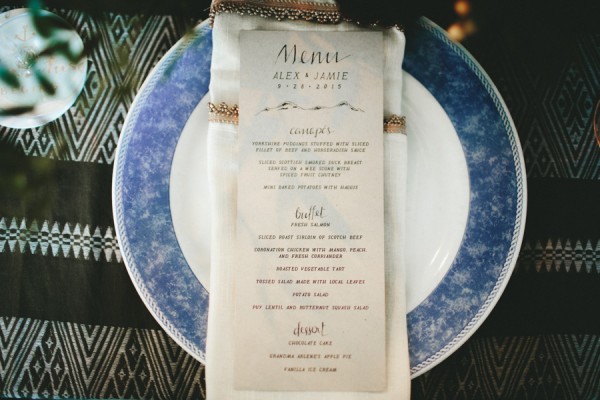 Menu
ALEX & JAMIE
9·28·2015
canapés
YORKSHIRE PUDDINGS STUFFED WITH SLICED
FILLET OF BEEF AND HORSERADISH SAUCE
SLICED SCOTTISH SMOKED DUCK BREAST
SERVED ON A WEE SCONE WITH
SPICED FRUIT CHUTNEY
MINI BAKED POTATOES WITH HAGGIS
buffet
FRESH SALMON
SLICED ROAST SIRLOIN OF SCOTCH BEEF
CORONATION CHICKEN WITH MANGO, PEACH,
AND FRESH CORIANDER
ROASTED VEGETABLE TART
TOSSED SALAD MADE WITH LOCAL LEAVES
POTATO SALAD
PUY LENTIL AND BUTTERNUT SQUASH SALAD
dessert
CHOCOLATE CAKE
GRANDMA ARLENE'S APPLE PIE
VANILLA ICE CREAM